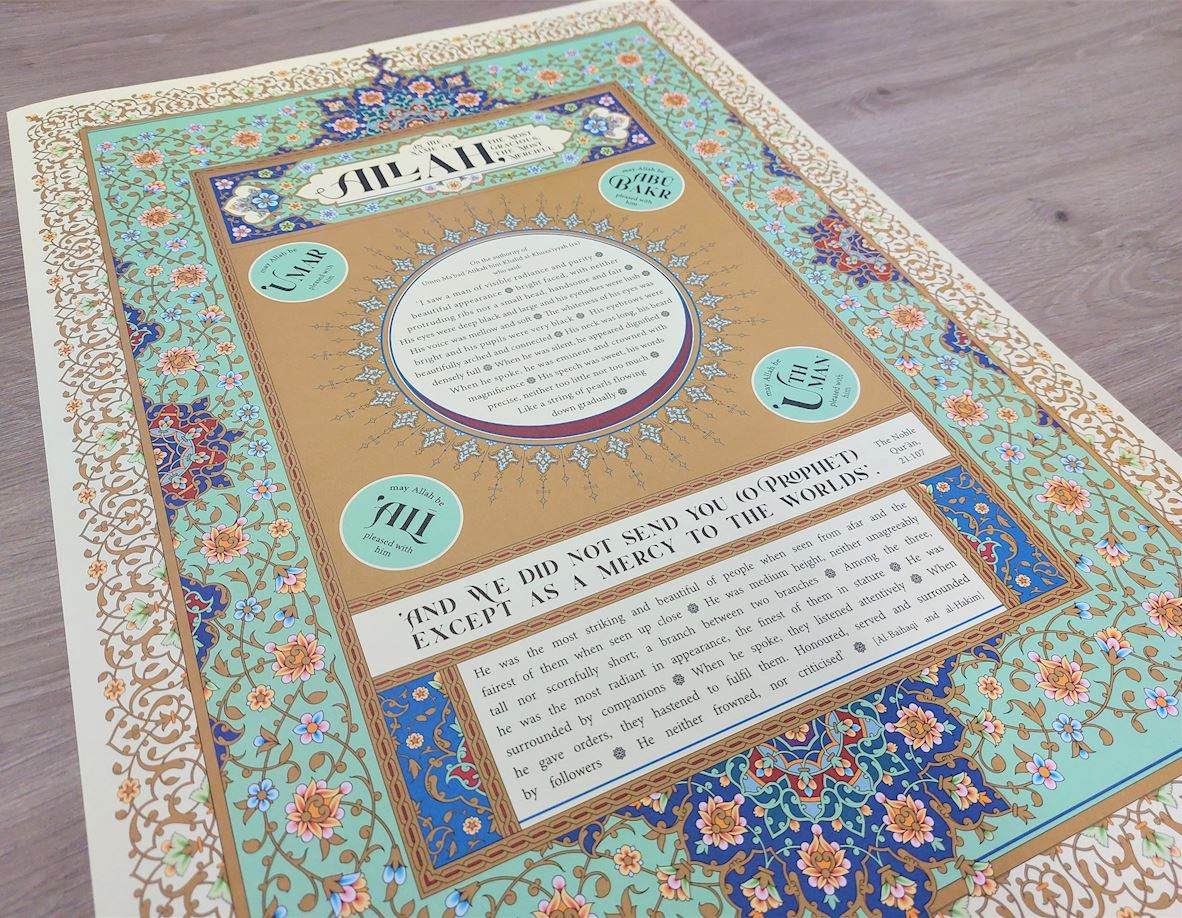 IN THE
NAME OF
ALLAH,
THE MOST
GRACIOUS,
THE MOST
MERCIFUL
may Allah be
ABU
BAKR
pleased with
him
may Allah be
'UMAR
pleased with
him
On the authority of
Umm Ma'bad 'Atikah bint Khalid al-Khuza'iyyah (ra)
who said:
'I saw a man of visible radiance and purity
beautiful appearance bright faced, with neither
protruding ribs nor small head, handsome and fair
His eyes were deep black and large and his eyelashes were lush
His voice was mellow and soft The whiteness of his eyes was
bright and his pupils were very black His eyebrows were
beautifully arched and connected His neck was long, his beard
densely full When he was silent, he appeared dignified
When he spoke, he was eminent and crowned with
magnificence His speech was sweet, his words
precise, neither too little nor too much
Like a string of pearls flowing
down gradually
may Allah be
'UTH
MAN
pleased with
him
may Allah be
'ALI
pleased with
him
'AND WE DID NOT SEND YOU (O PROPHET)
EXCEPT AS A MERCY TO THE WORLDS'.
The Noble
Qur'an,
21:107
He was the most striking and beautiful of people when seen from afar and the
fairest of them when seen up close He was medium height, neither unagreeably
tall nor scornfully short; a branch between two branches Among the three,
he was the most radiant in appearance, the finest of them in stature He was
surrounded by companions When he spoke, they listened attentively When
he gave orders, they hastened to fulfil them. Honoured, served and surrounded
by followers He neither frowned, nor criticised' [Al-Baihaqi and al-Hakim]